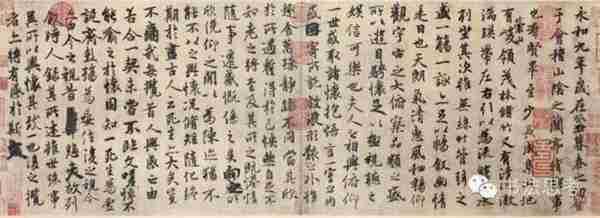 永和九年歲在癸丑暮春之初會
于會稽山陰之蘭亭脩稧事
也群賢畢至少長咸集此地
有崇山峻領茂林脩竹又有清流激
湍暎帶左右引以為流觴曲水
列坐其次雖無絲竹管弦之
盛一觴一詠亦足以暢敘幽情
是日也天朗氣清惠風和暢仰
觀宇宙之大俯察品類之盛
所以遊目騁懷足以極視聽之
娛信可樂也夫人之相與俯仰
一世或取諸懷抱悟言一室之內
或因寄所託放浪形骸之外雖
趣舍萬殊靜躁不同當其欣
於所遇暫得於己怏然自足不
知老之將至及其所之既惓情
隨事遷感慨係之矣向之所
欣俛仰之閒以為陳迹猶不
能不以之興懷況脩短隨化終
期於盡古人云死生亦大矣豈
不痛哉每攬昔人興感之由
若合一契未嘗不臨文嗟悼不
能喻之於懷固知一死生為虛
誕齊彭殤為妄作後之視今
亦由今之視昔悲夫故列
敘時人錄其所述雖世殊事
異所以興懷其致一也後之攬
者亦將有感於斯文
书法思考